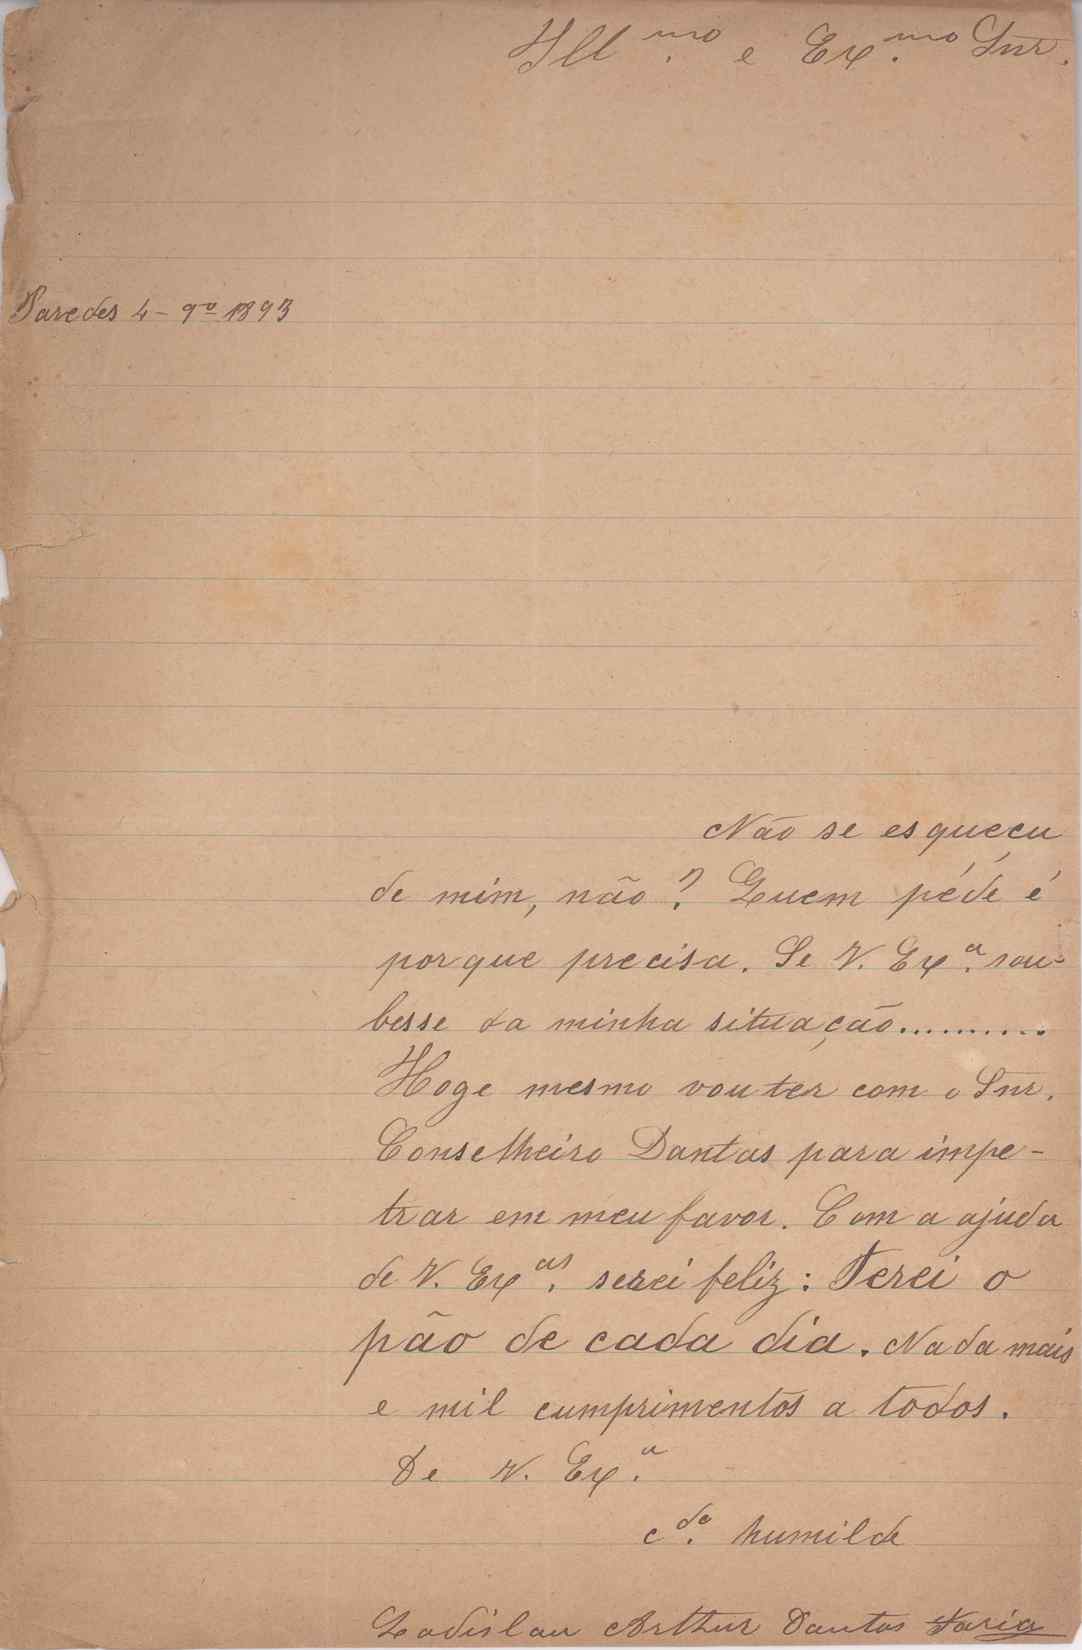 Ill.mo e Ex.mo Snr.
Paredes 4-9º 1893
Não se esqueçu
de mim, não? Quem péde é
porque precisa. Se V. Ex.a sou-
besse da minha situação..........
Hoge mesmo vou ter com o Snr.
Conselheiro Dantas para impe-
trar em meu favor. Com a ajuda
de V. Ex.as serei feliz: Terei o
pão de cada dia. Nada mais
e mil cumprimentos a todos.
De V. Ex.a
c.do humilde
Ladislau Arthur Dantas Faria